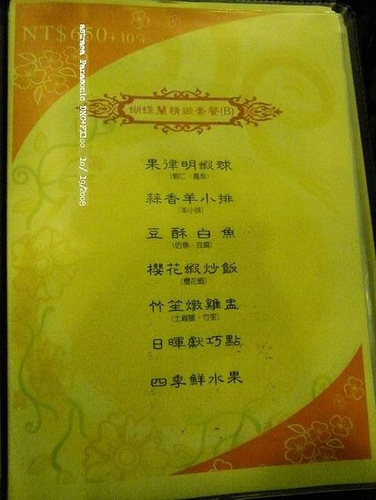 NT$650+10%
蝴蝶蘭精緻套餐(B)
果律明蝦球
(蝦仁、鳳梨)
蒜香羊小排
(羊小排)
豆酥白魚
(白魚、豆腐)
櫻花蝦炒飯
(櫻花蝦)
竹笙燉雞盅
(土雞腿、竹笙)
日暉獻巧點
四季鮮水果
Panasonic DMC-FX100 10/19/2008